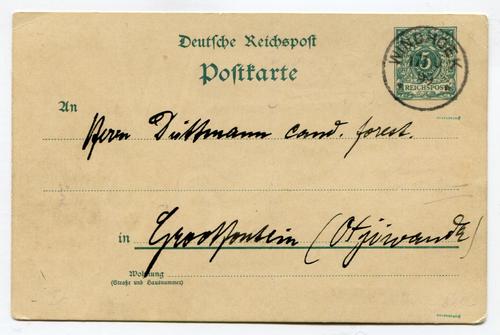 Deutsche Reichspost
Postkarte
WINDHOEK
5
REICHSPOST
An
Herrn Düttmann cand. forest.
in Grootfontein (Otjiwanda
Wohnung
(Straße und Hausnummer)